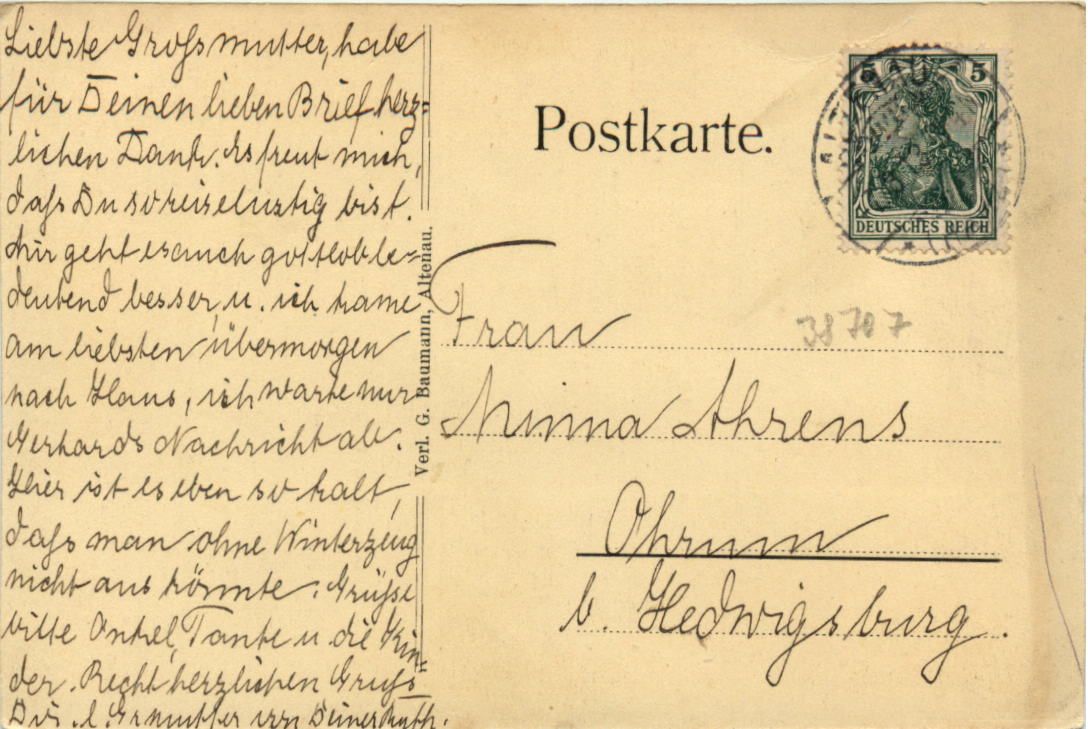 Liebste Grossmutter, habe
für Deinen lieben Brief herz=
lichen Dank. Es freut mich,
dass Du so reiselustig bist.
Mir geht es auch gottlob be=
deutend besser, u. ich käme
am liebsten übermorgen
nach Haus, ich warte nur
Gerhards Nachricht ab.
Hier ist es eben so kalt,
dass man ohne Winterzeug
nicht aus könnte. Grüsse
bitte Onkel, Tante u die Kin=
der. Recht herzlichen Gruss
Dir l. Grmutter von Deiner Ruth.
Verl. G. Baumann, Altenau.
Postkarte.
5 5
DEUTSCHES REICH
38707
Frau
Minna Ahrens
Ohrum
b. Hedwigsburg.